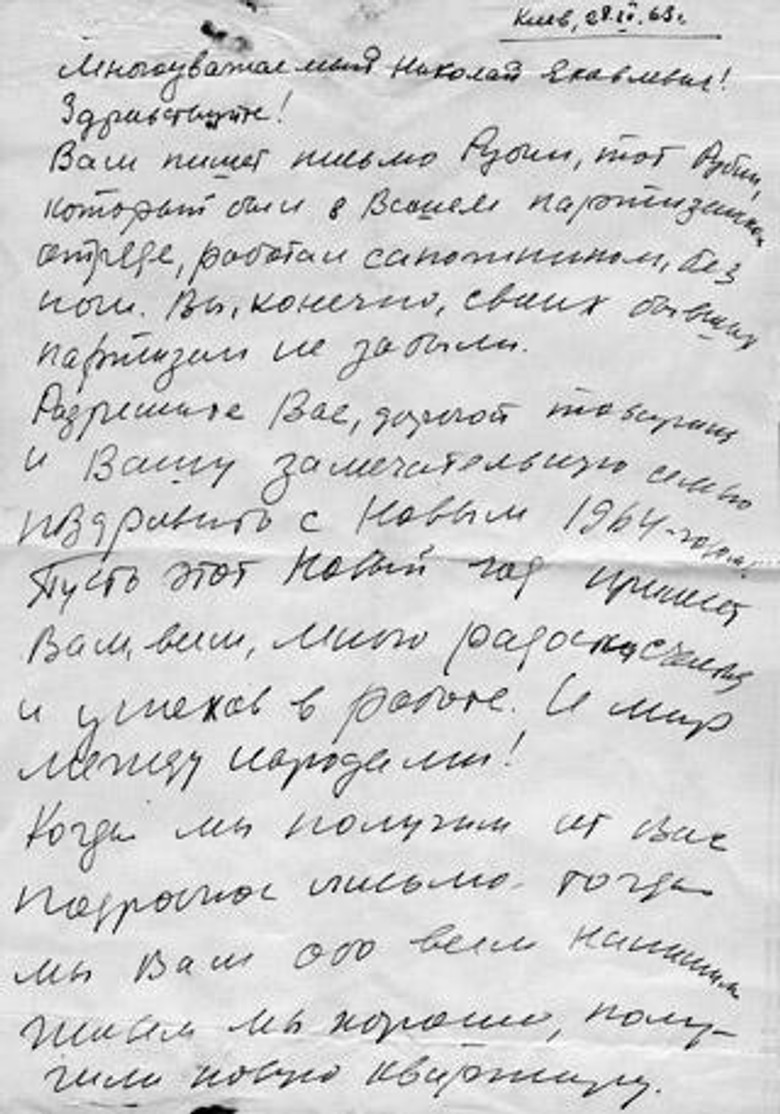 Киев, 28.II.63г.
Многоуважаемый Николай Яковлевич!
Здравствуйте!
Вам пишет письмо Рубин, тот Рубин,
который был в Вашем партизанском
отряде, работал сапожником, без
ноги. Вы, конечно, своих бывших
партизан не забыли.
Разрешите Вас, дорогой товарищ
и Вашу замечательную семью
поздравить с Новым 1964-годом!
Пусть этот Новый год принесет
Вам, всем, много радости, счастья
и успехов в работе. И мир
между народами!
Когда мы получим от Вас
подробное письмо, тогда
мы Вам обо всем напишем
живем мы хорошо, полу-
чили новую квартиру.